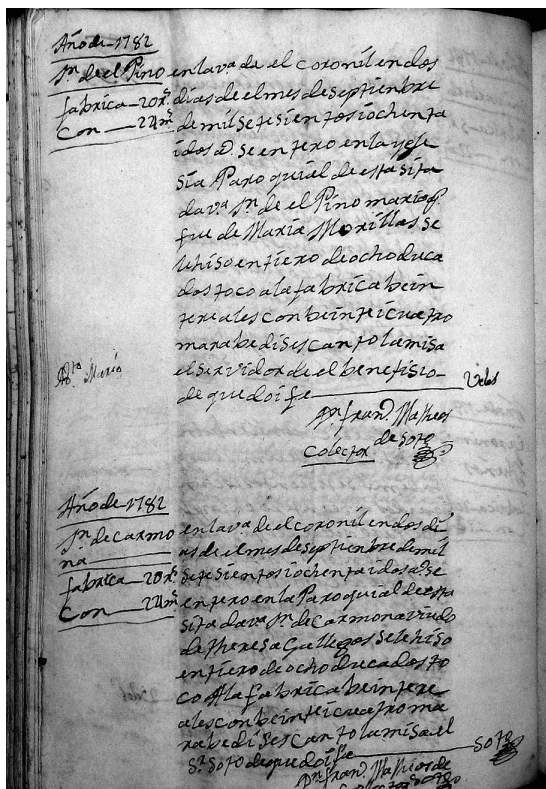 Año de 1782
Jn. de el Pino
fabrica — 20 rs.
Con — 24 ms.
en la va. de el coronil en dos
dias de el mes de septiembre
de mil setesientos iochenta
idos as. se entero en la ygle
sia Paroquial de esta sita
da va. Jn. de el Pino marido q.
fue de Maria Morillas se
le hiso entiero de ocho duca
dos toco a la fabrica bein
te reales con beinticuatro
marabedises canto la misa
el servidor de el benefisio
de que doi fe
Velos
Dn. fran. Matheos
Colector de Soto
Año de 1782
Jn. de carmo
na
fabrica — 20 rs.
Con — 24 ms.
en la va. de el coronil en dos di
as de el mes de septienbre de mil
setesientos iochenta idos as. se
entero en la Paroquial de esta
sitada va. Jn. de Carmona viudo
de theresa Gallegos se le hiso
entiero de ocho ducados to
co a la fabrica beinte re
ales con beinticuatro ma
rabedises canto la misa el
Sr. Soto de que doi fe
Soto
Dn. fran. Matheos de